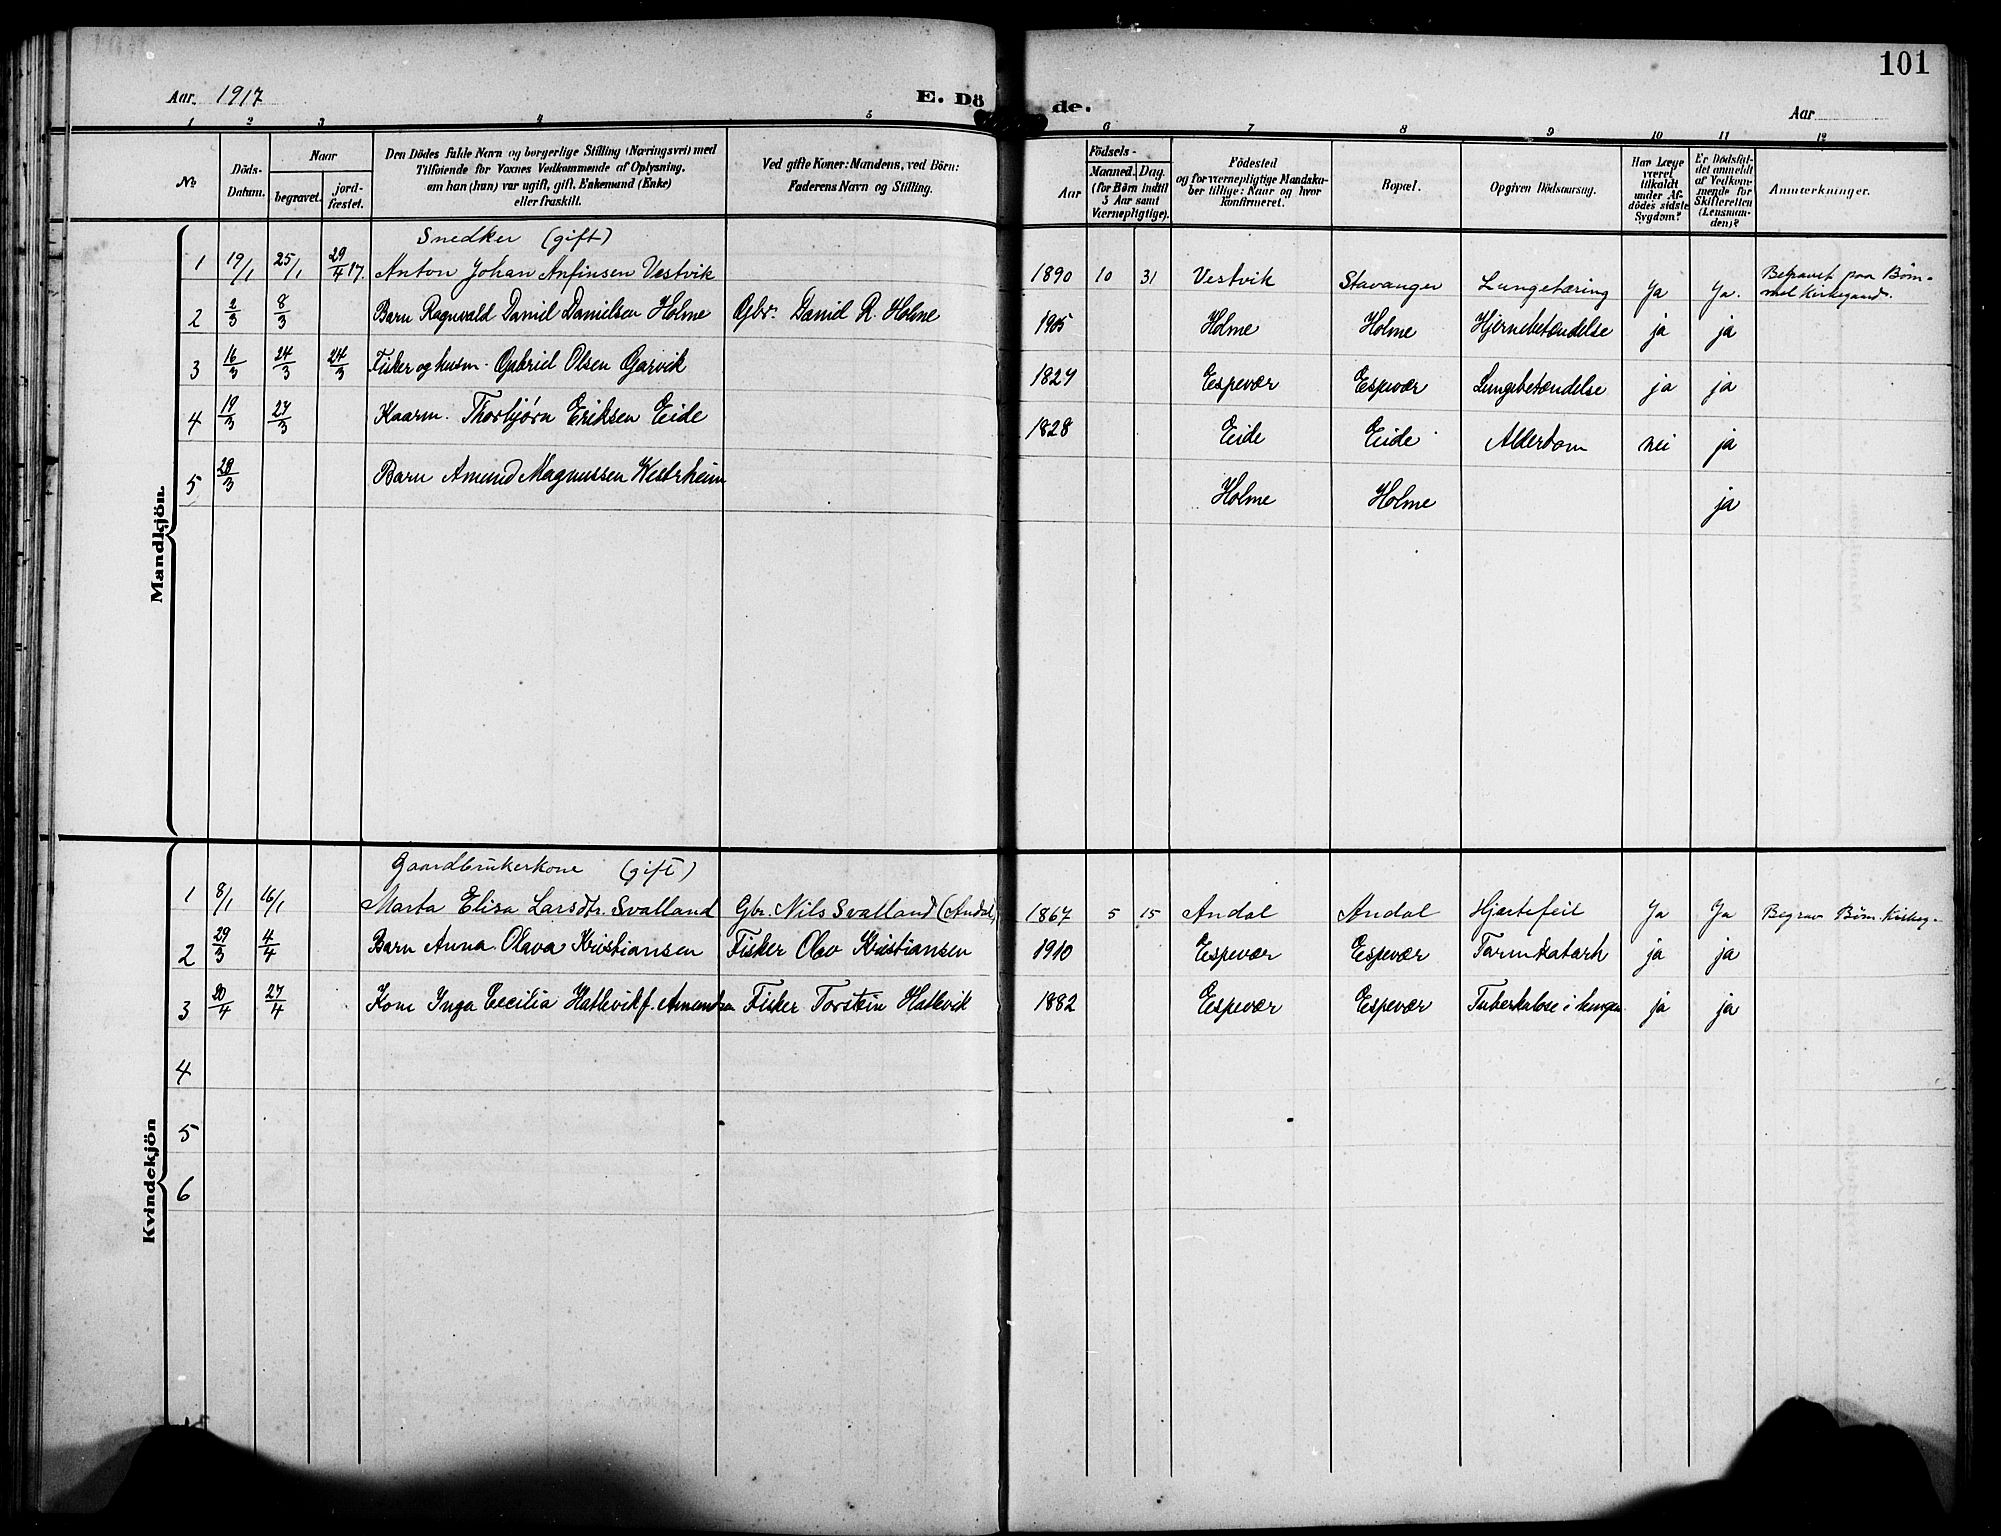 101
Aar 1917
E. Dö de.
Aar
1 2 3 4 5 6 7 8 9 10 11 12
No
Döds-Datum.
Naar
begravet.
jord-fæstet.
Den Dödes fulde Navn og borgerlige Stilling (Næringsvei) med
Tilföiende for Voxnes Vedkommende af Oplysning,
om han (hun) var ugift, gift, Enkemand (Enke)
eller fraskilt.
Ved gifte Koner: Mandens, ved Börn:
Faderens Navn og Stilling.
Födsels-
Aar
Maaned. Dag.
(for Børn indtil
3 Aar samt
Værnepligtige).
Födested
og for værnepligtige Mandska-
ber tillige: Naar og hvor
konfirmeret.
Bopæl.
Opgiven Dödsaarsag.
Har Læge
været
tilkaldt
under Af-
dödes sidste
Sygdom?
Er Dödsfal-
det anmeldt
af Vedkom-
mende for
Skifteretten
(Lensman-
den)?
Anmærkninger.
Mandkjön.
Snedker (gift)
1 19/1 25/1 29/4 17. Anton Johan Anfinsen Vestvik 1890 10 31 Vestvik Stavanger Lungetæring Ja Ja. Begravet paa Bøm-
mel Kirkegaard.
2 2/3 8/3 Barn Ragnvald Daniel Danielsen Holme Gbr. Daniel R. Holme 1905 Holme Holme Hjernebetændelse ja ja
3 16/3 24/3 24/3 Fisker og husm. Gabriel Olsen Garvik 1827 Espevær Espevær Lungebetændelse ja ja
4 19/3 27/3 Kaarm. Thorbjørn Eriksen Eide 1828 Eide Eide Alderdom nei ja
5 28/3 Barn Amund Magnussen Westrheim Holme Holme ja
Kvindekjön
Gaardbrukerkone (gift)
1 8/1 16/1 Marta Elisa Larsdtr. Svalland Gbr. Nils Svalland (Andal) 1867 5 15 Andal Andal Hjertefeil Ja Ja Begrav Bøm. Kirkeg.
2 29/3 4/4 Barn Anna Olava Kristiansen Fisker Olav Kristiansen 1910 Espevær Espevær Tarmkatarh ja ja
3 20/4 27/4 Kone Inga Cecilia Hatlevik f. Amundsen Fisker Torstein Hatlevik 1882 Espevær Espevær Tuberkulose i lungen ja ja
4
5
6